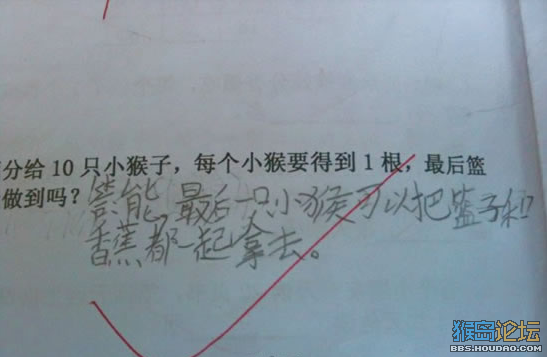 分给10只小猴子，每个小猴要得到1根，最后篮
做到吗？
答能，最后一只小猴可以把篮子和
香蕉都一起拿去。
猴岛论坛
BBS.HOUDAO.COM